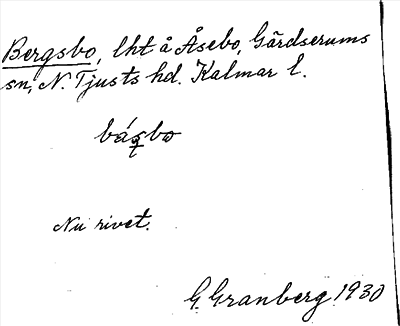 Bergsbo, lht å Åsebo, Gärdserums
sn, N. Tjusts hd. Kalmar l.
Nu rivet.
G. Granberg 1930